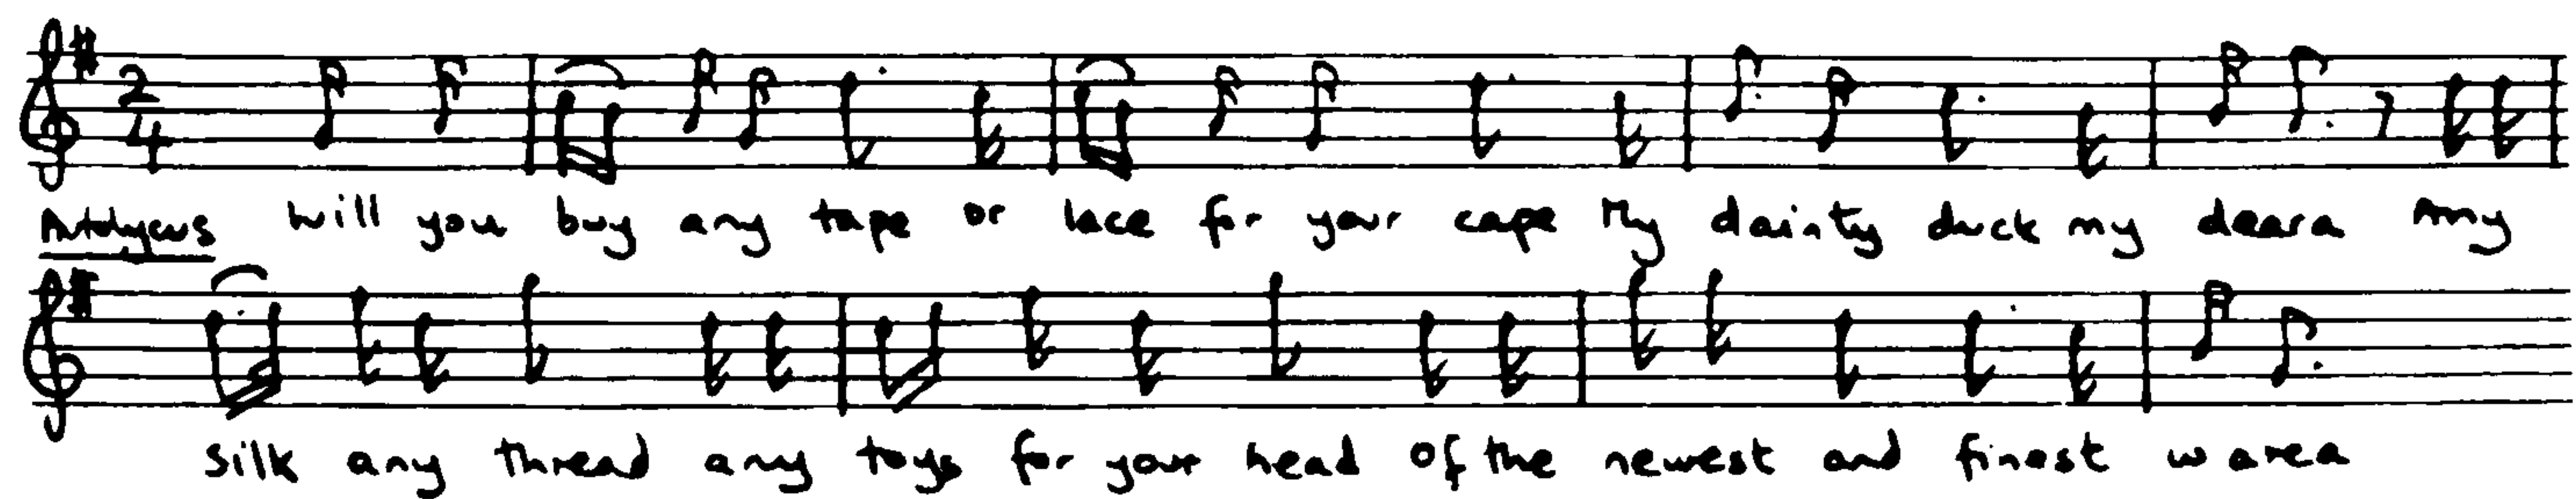 2
4
Autolycus Will you buy any tape or lace for your cape My dainty duck my deara Any
silk any thread any toys for your head of the newest and finest warea